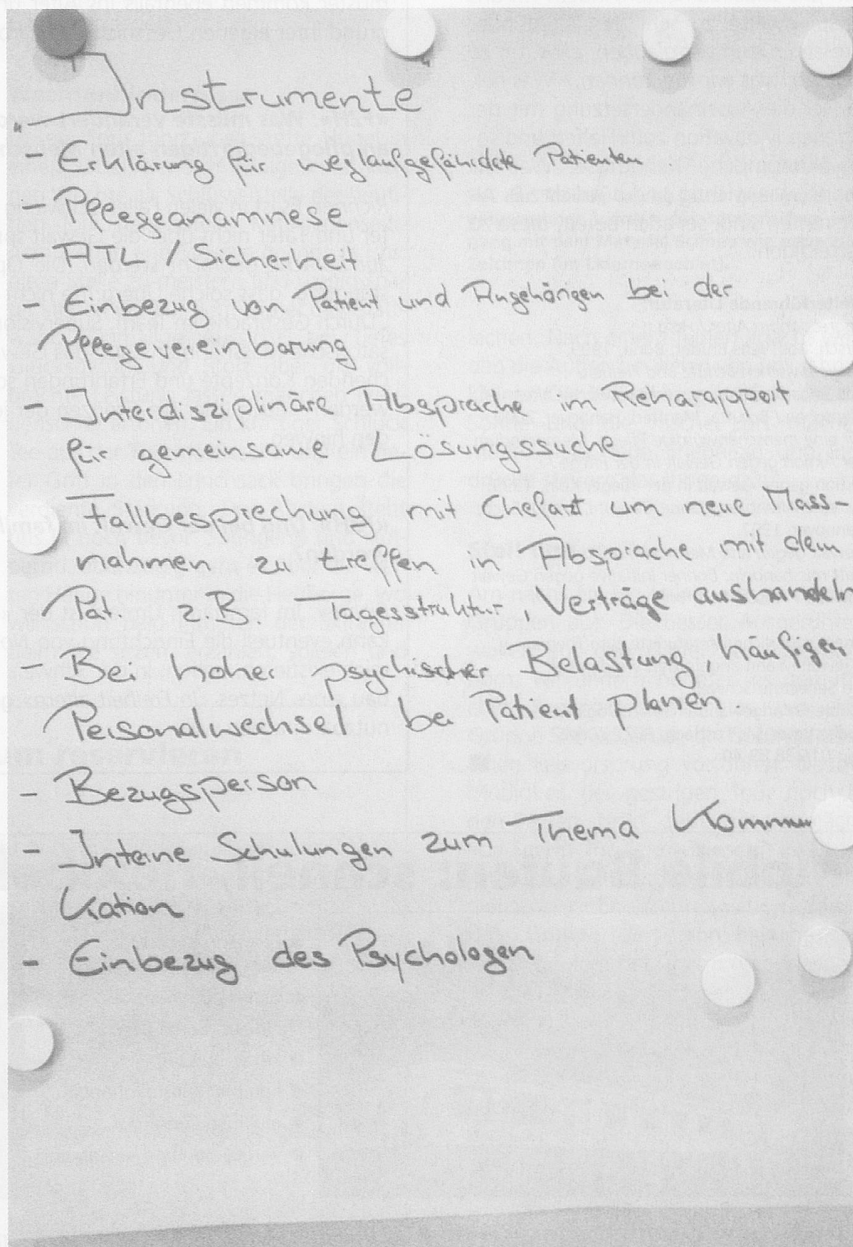 Instrumente
- Erklärung für weglaufgefährdete Patienten
- Pflegeanamnese
- ATL / Sicherheit
- Einbezug von Patient und Angehörigen bei der
Pflegevereinbarung
- Interdisziplinäre Absprache im Reharapport
für gemeinsame Lösungssuche
Fallbesprechung mit Chefarzt um neue Mass-
nahmen zu treffen in Absprache mit dem
Pat. z.B. Tagesstruktur, Verträge aushandeln
- Bei hoher psychischer Belastung, häufigen
Personalwechsel bei Patient planen
- Bezugsperson
- Interne Schulungen zum Thema Kommuni
kation
- Einbezug des Psychologen